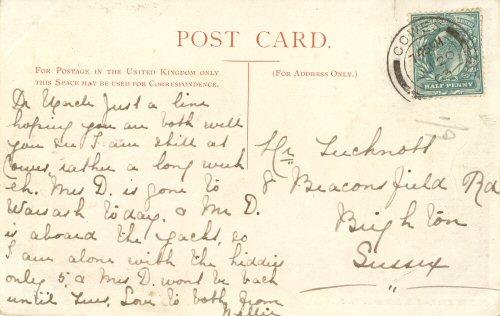 POST CARD.
FOR POSTAGE IN THE UNITED KINGDOM ONLY
THIS SPACE MAY BE USED FOR CORRESPONDENCE.
(FOR ADDRESS ONLY.)
HALF PENNY
Dr Just a line
hoping you are both well
you see I am still at
Cowes, rather a long week
eh. Mrs D. is gone to
Warsash today, & Mr D.
is aboard the yacht, so
I am alone with the kiddies
only 5, & Mrs D. wont be back
until Tues. Love to both from
Nellie
Mr Tucknott
8 Beaconsfield Rd
Brighton
Sussex